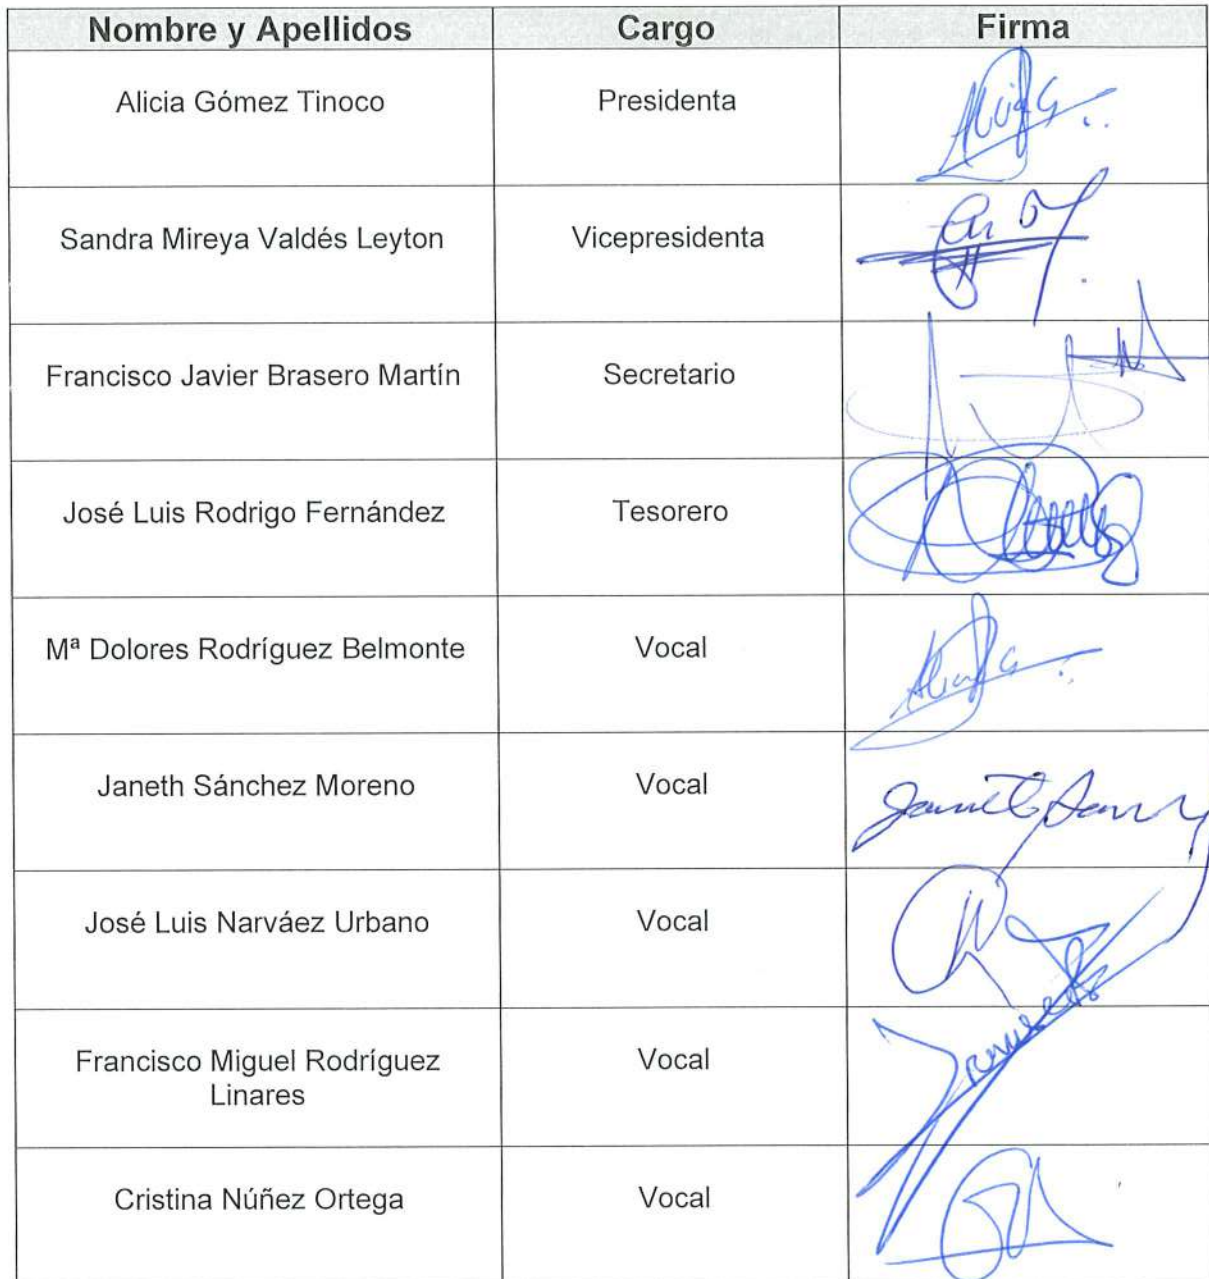 Nombre y Apellidos Cargo Firma
Alicia Gómez Tinoco Presidenta
Sandra Mireya Valdés Leyton Vicepresidenta
Francisco Javier Brasero Martín Secretario
José Luis Rodrigo Fernández Tesorero
Mª Dolores Rodríguez Belmonte Vocal
Janeth Sánchez Moreno Vocal
José Luis Narváez Urbano Vocal
Francisco Miguel Rodríguez Vocal
Linares
Cristina Núñez Ortega Vocal